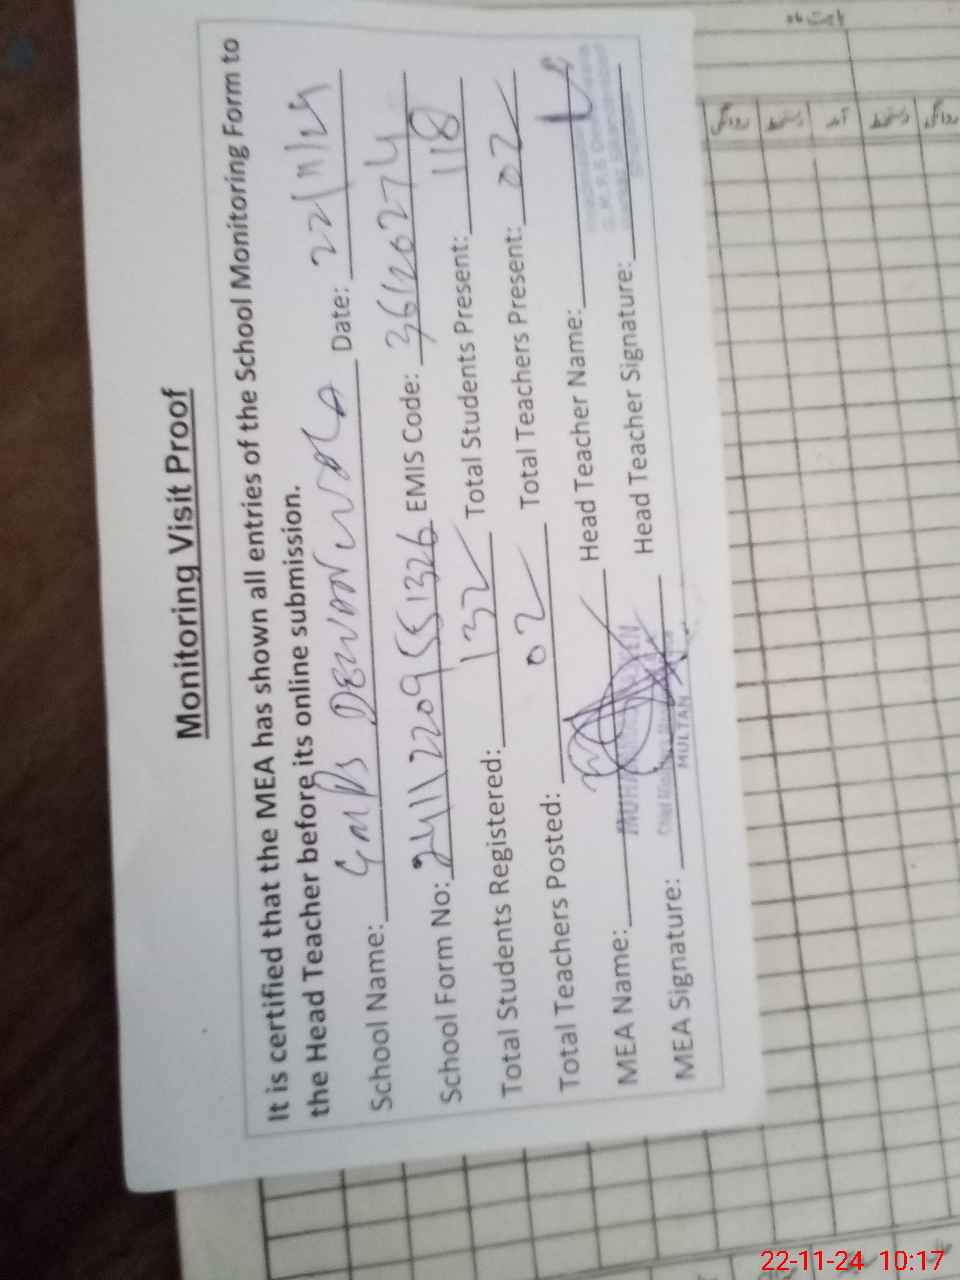 Monitoring Visit Proof
It is certified that the MEA has shown all entries of the School Monitoring Form to
the Head Teacher before its online submission.
School Name: GMPS DEWAN WALA Date: 22/11/24
School Form No: 24112209551326 EMIS Code: 36120274
Total Students Registered: 132 Total Students Present: 118
Total Teachers Posted: 02 Total Teachers Present: 02
MEA Name: Head Teacher Name:
MEA Signature: MULTAN Head Teacher Signature:
22-11-24 10:17